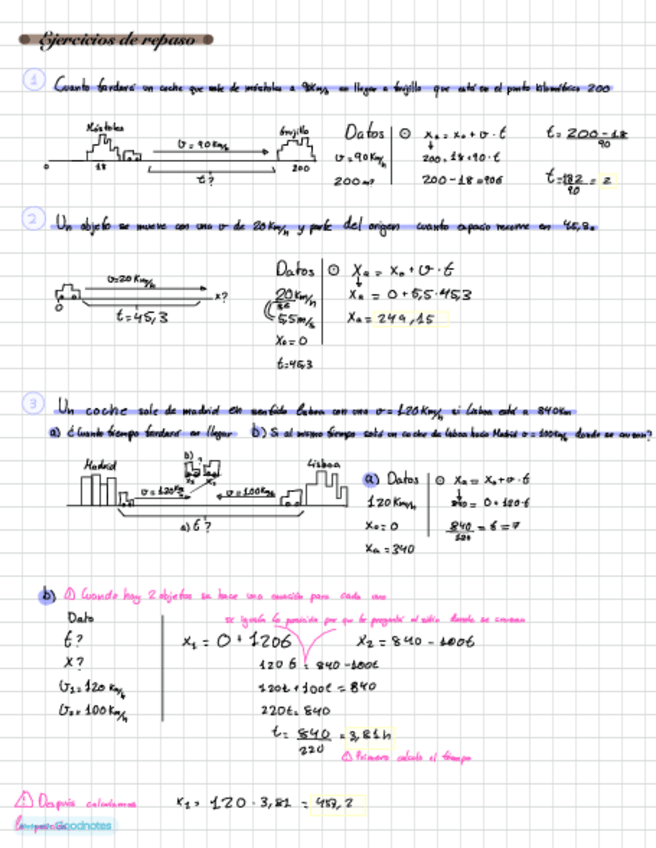 Ejercicios de repaso
1 Cuanto tardará un coche que sale de móstoles a 90Km/h en llegar a trujillo que está en el punto kilométrico 200
Móstoles
v = 90Km/h
trujillo
0 18 200
t?
Datos
v = 90Km/h
200m?
xa = xo + v · t
200 = 18 + 90 · t
200 - 18 = 90t
t = 200 - 18 / 90
t = 182 / 90 = 2
2 Un objeto se mueve con una v de 20 Km/h y parte del origen cuanto espacio recorre en 45,3s
v = 20 Km/h
0 x?
t = 45,3
Datos
20 Km/h
5,5 m/s
Xo = 0
t = 45,3
Xa = Xo + v · t
Xa = 0 + 5,5 · 45,3
Xa = 249,15
3 Un coche sale de madrid en sentido lisboa con una v = 120 Km/h si lisboa está a 840Km
a) ¿Cuanto tiempo tardará en llegar b) Si al mismo tiempo sale un coche de lisboa hacia Madrid v = 100Km/h donde se cruzan?
Madrid
b) ?
Lisboa
v = 120Km/h
v = 100Km/h
a) t?
a) Datos
120 Km/h
Xo = 0
Xa = 340
Xa = Xo + v · t
840 = 0 + 120 · t
840 / 120 = t = 7
b) Cuando hay 2 objetos se hace una ecuación para cada uno
se iguala la posición por que te pregunta el sitio donde se cruzan
Dato
t?
x?
v1 = 120 Km/h
v2 = 100 Km/h
X1 = 0 + 120t
X2 = 840 - 100t
120t = 840 - 100t
120t + 100t = 840
220t = 840
t = 840 / 220 = 3,81 h
Primero calcula el tiempo
Después calculamos
X1 = 120 · 3,81 = 457,2
Goodnotes